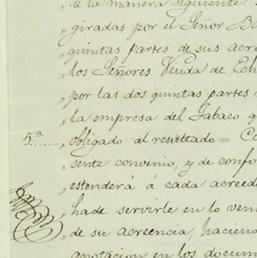 „de la manera siguiente:
„giradas por el Señor
„quintas partes de sus
„los Señores Viuda de
„por las dos quintas partes
„la empresa del Tabaco
5ª„obligado al resultado=
„sente convenio, y de
„estenderá a cada
„ha de servirle en lo
„de su acreencia,
„anotacion en los